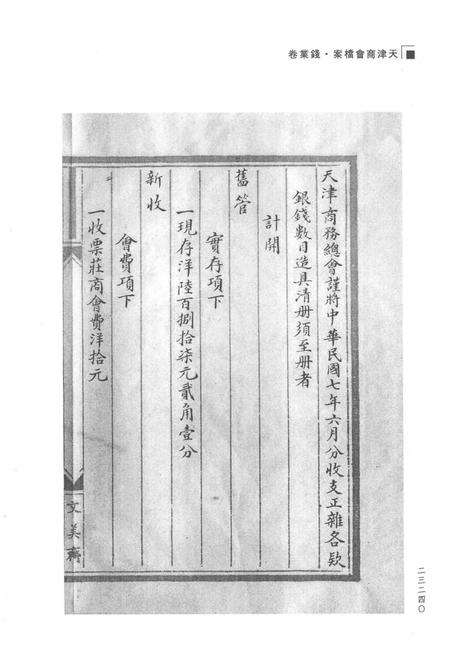 天津商會檔案·錢業卷
天津商務總會謹將中華民國七年六月分收支正雜各欵
銀錢數目造具清册須至册者
計開
舊管
實存項下
一現存洋陸百捌拾柒元貳角壹分
新收
會費項下
一收票莊商會費洋拾元
文美齋
二三二四〇